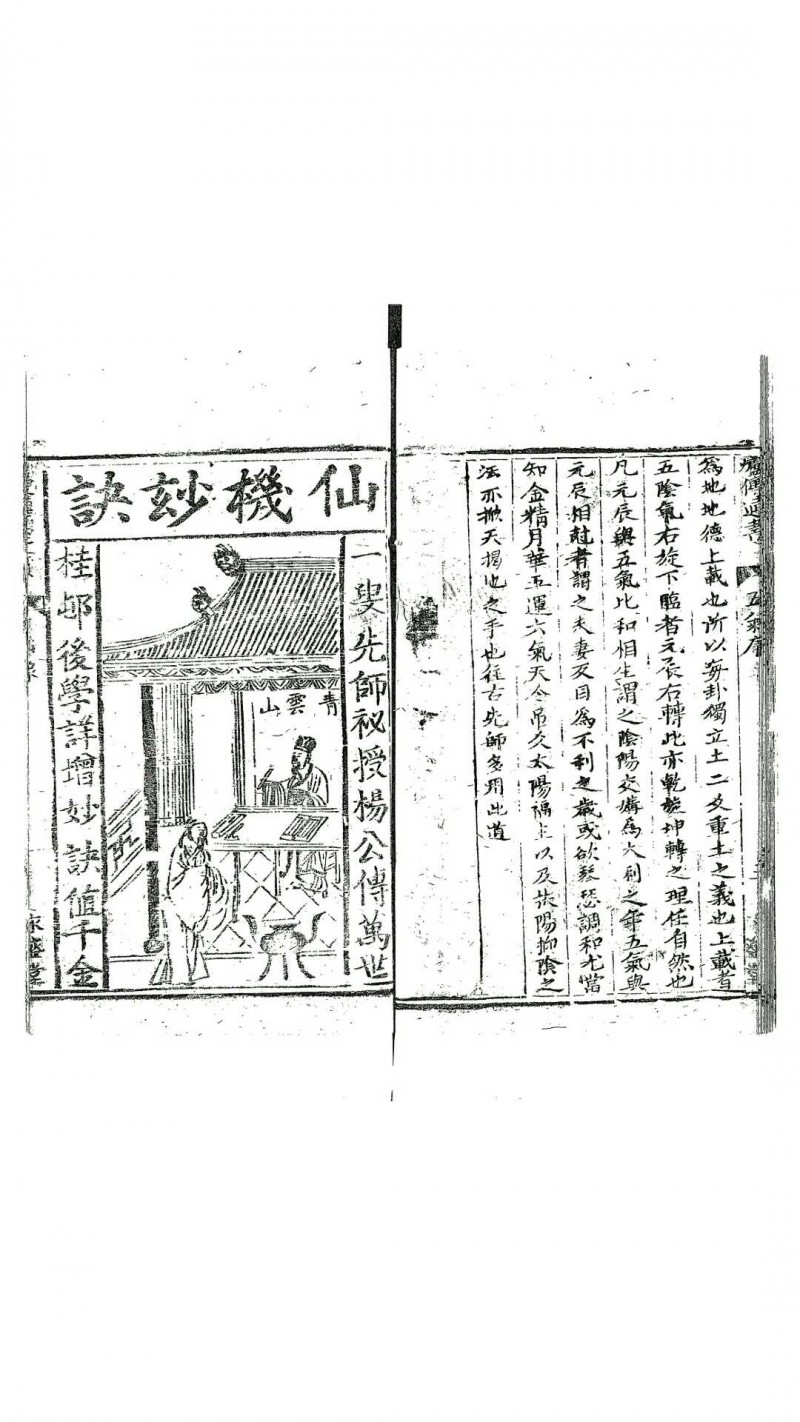 為地地德上載也所以每卦獨立土二爻重土之義也上載者
五陰氣右旋下臨者元辰右轉此亦乾旋坤轉之理任自然也
凡元辰與五氣比和相生謂之陰陽交媾為大利之年五氣與
元辰相尅者謂之夫妻反目為不利之歲或欲發丟調和尤當
知金精月華五運六氣天令吊久太陽福主以及扶陽抑陰之
法亦掀天揭地之手也往古先師多用此道
仙機妙訣
一叟先師祕授楊公傳萬世
青雲山
桂邨後學詳增妙訣値千金